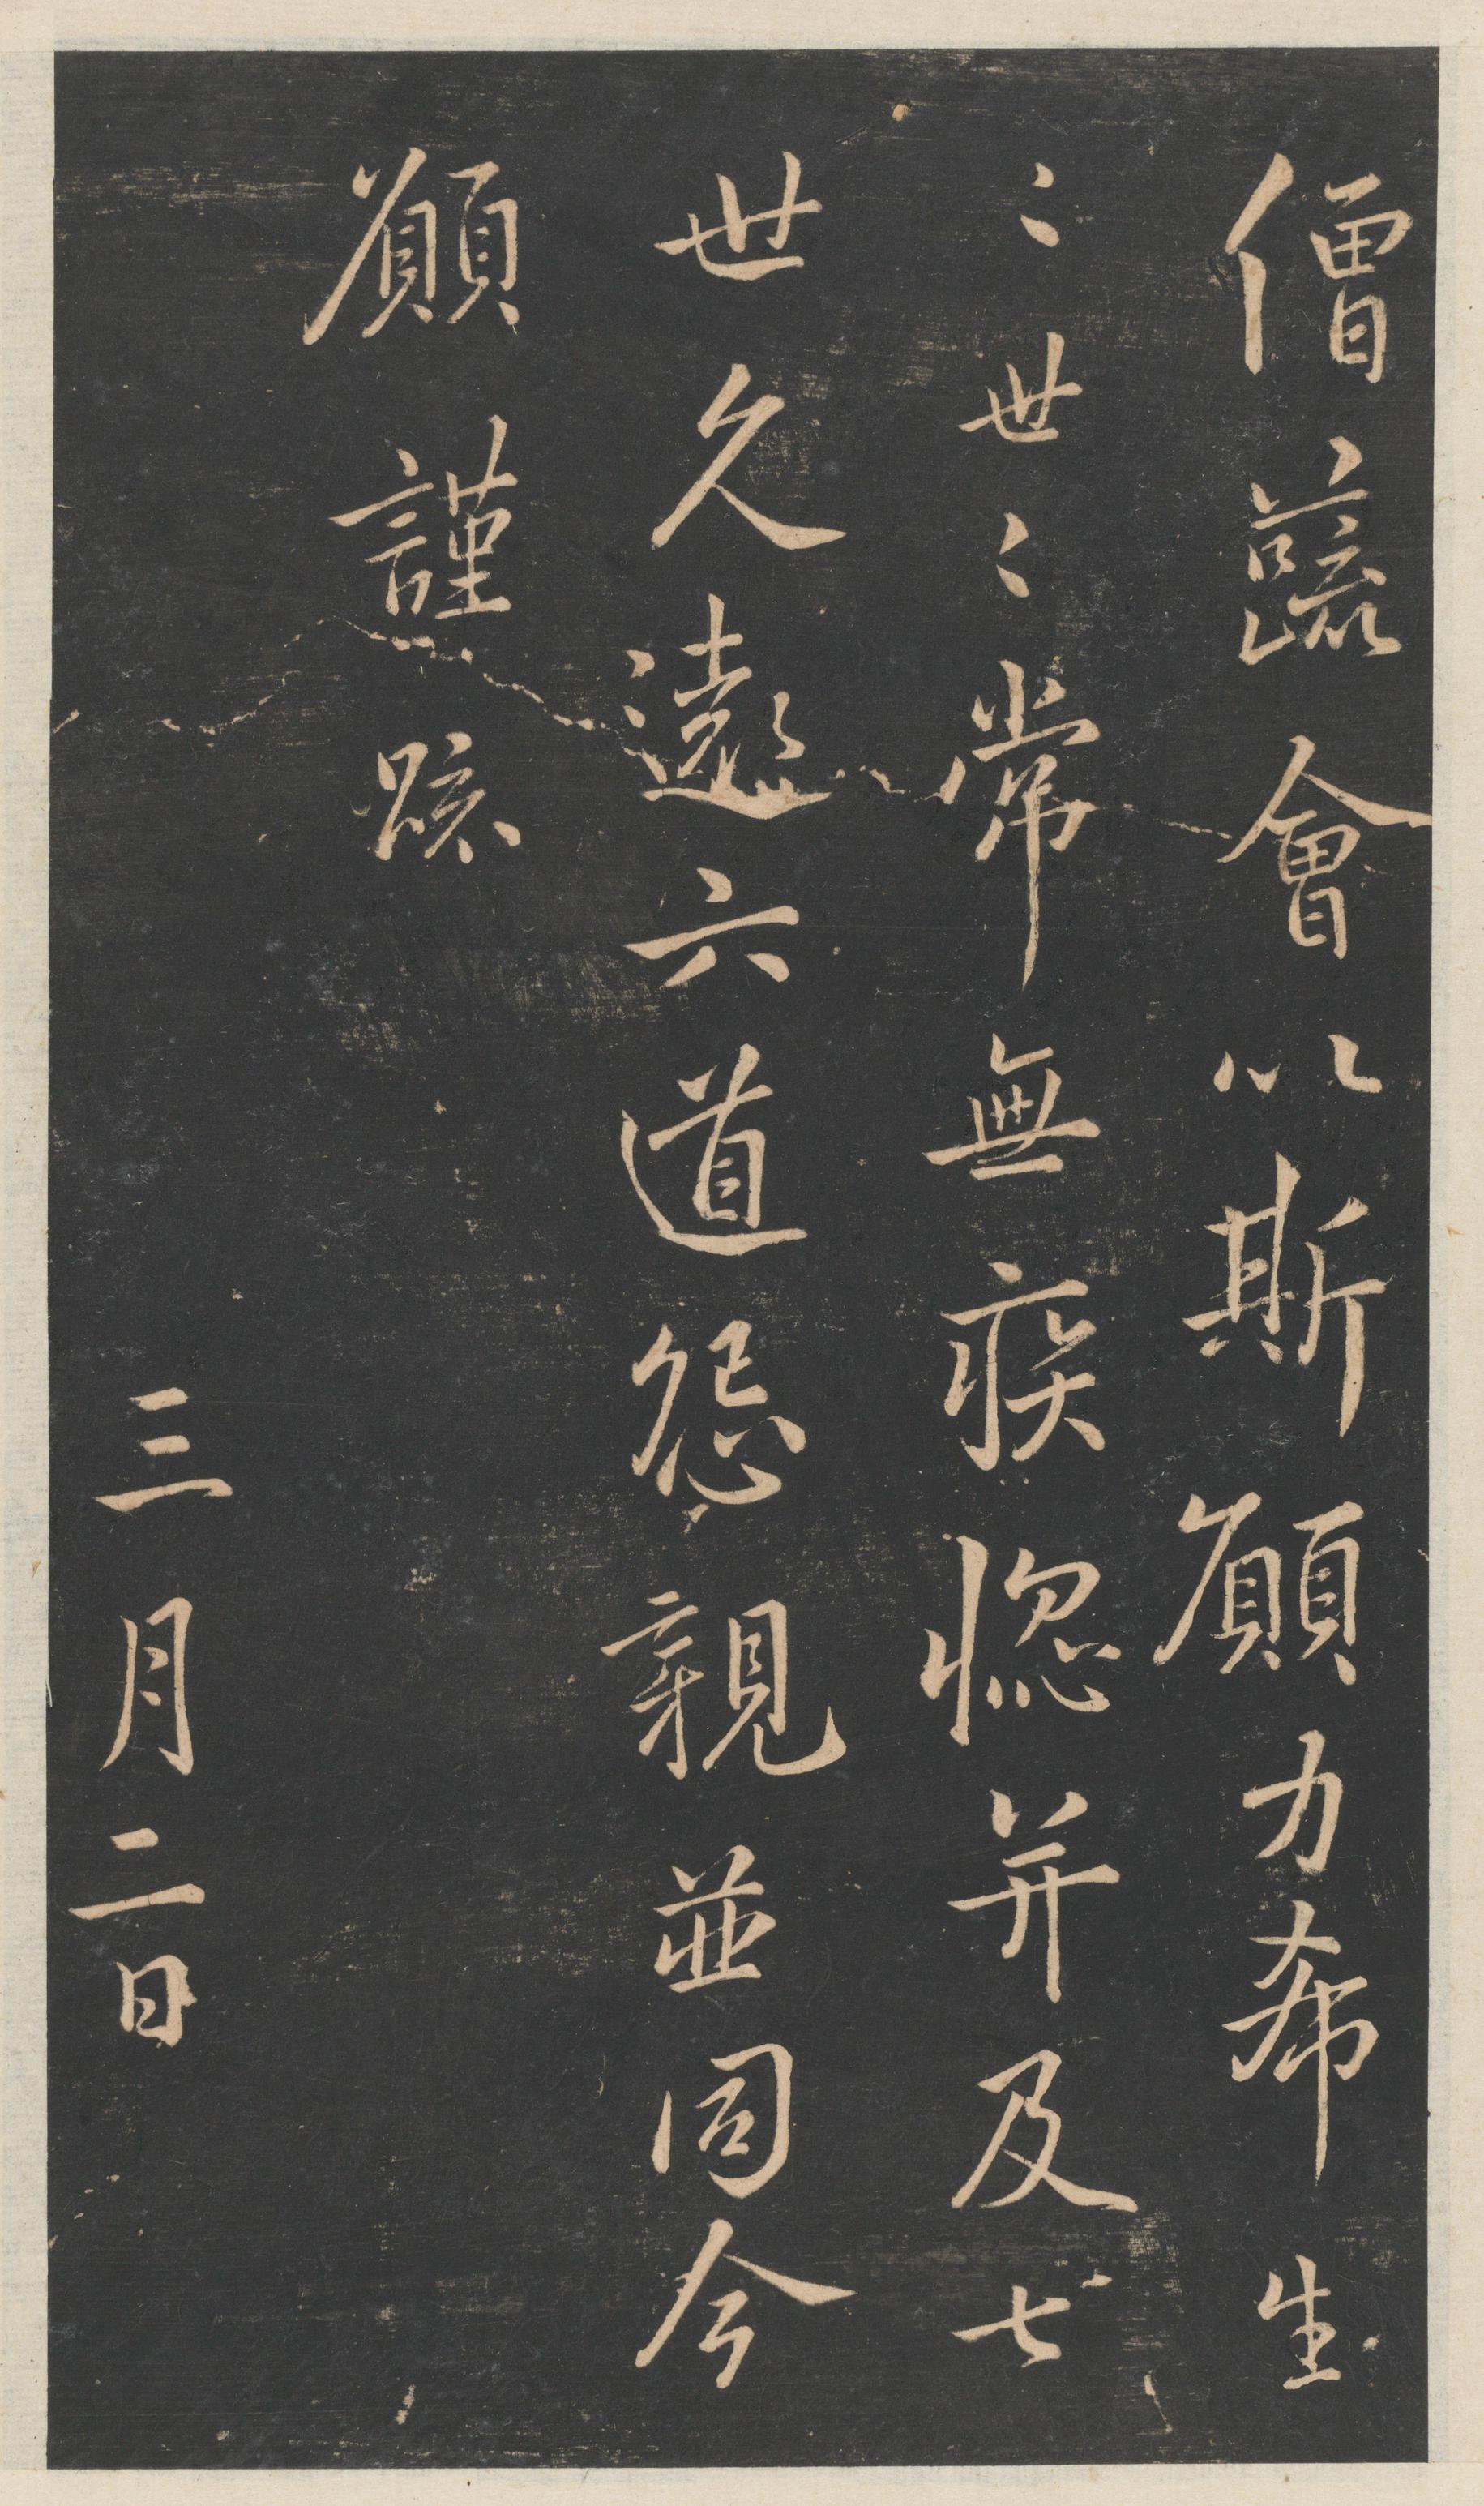 僧蔬會以斯願力希生
〻世〻常無疾惱并及七
世久遠六道怨親並同今
願謹疏
三月二日